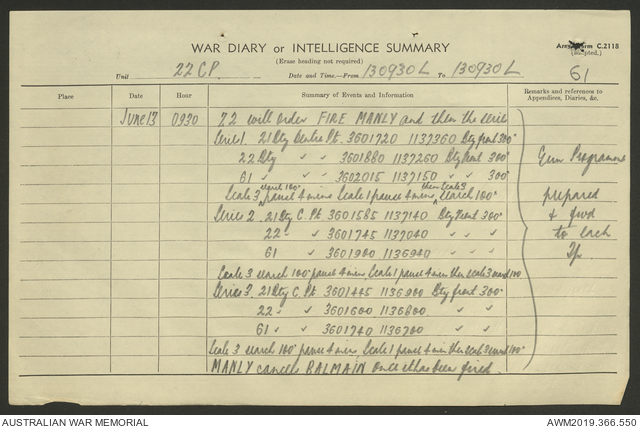 WAR DIARY or INTELLIGENCE SUMMARY
(Erase heading not required)
Army Form C.2118
(adapted.)
Unit 22 C.P. Date and Time.—From 130930L To 130930L
61
Place Date Hour Summary of Events and Information Remarks and references to Appendices, Diaries, &c.
June 13 0930 22 will order FIRE MANLY and then the series
Series 1. 21 Bty Centre Pt. 3601720 1137360 Bty front 300°
22 Bty " " 3601880 1137260 Bty front 300°
61 " " 3602015 1137150 " " 300°
Scale 3 search 100° pause 4 mins Scale 1 pause 4 mins then Scale 3 search 100°
Series 2. 21 Bty C. Pt 3601585 1137140 Bty front 300°
22 " " 3601745 1137040 " " "
61 " 3601900 1136940 " " "
Scale 3 search 100° pause 4 mins Scale 1 pause 4 mins then Scale 3 search 100
Series 3. 21 Bty C. Pt. 3601445 1136900 Bty front 300°
22 " " 3601600 1136800 " "
61 " " 3601740 1136700 " "
Scale 3 search 100° pause 4 mins Scale 1 pause 4 mins then Scale 3 search 100°
MANLY cancels BALMAIN once it has been fired.
Gun Programme
prepared
& fwd
to each
Tp.
AUSTRALIAN WAR MEMORIAL AWM2019.366.550